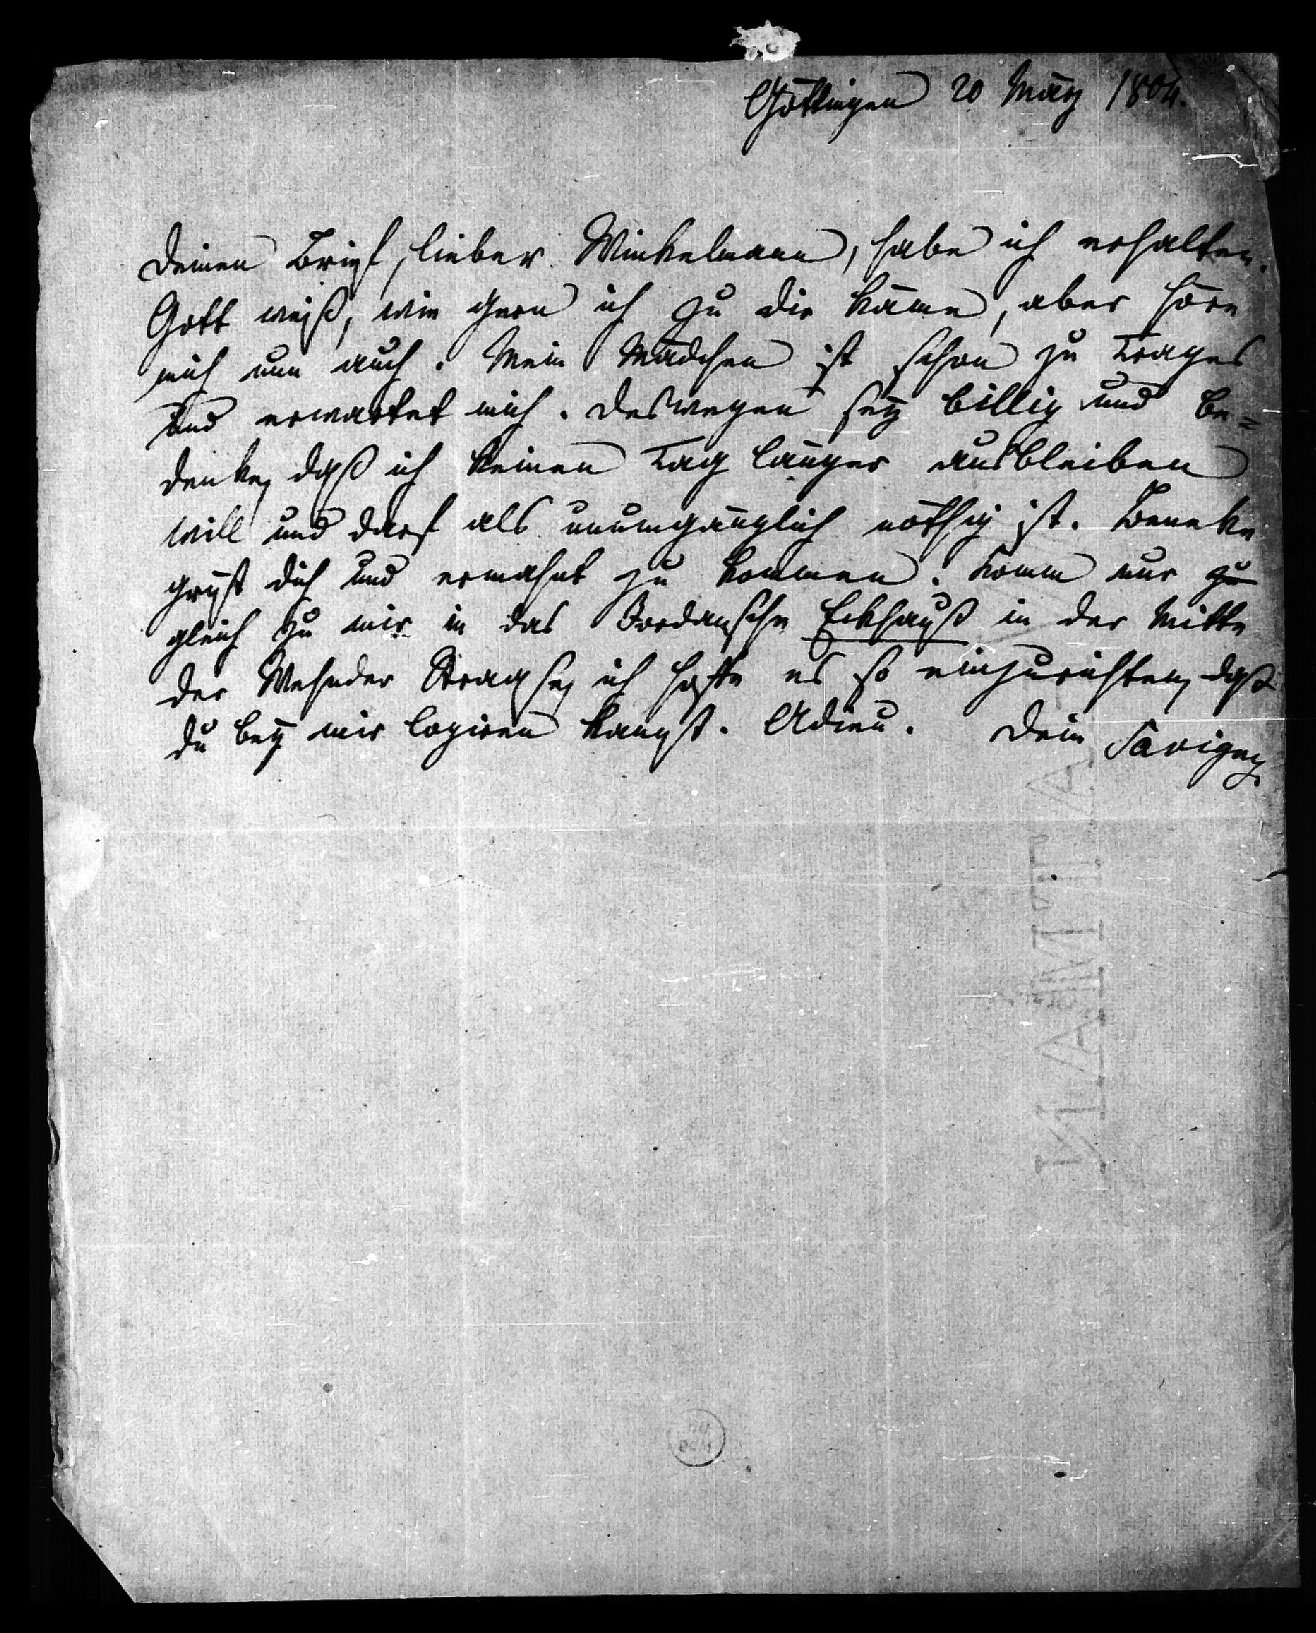 Göttingen 20 März 1804.
Deinen Brief, lieber Winkelmann, habe ich erhalten.
Gott weiß, wie gern ich zu dir käme, aber höre
mich nun auch. Mein Mädchen ist schon zu Trages
und erwartet mich. Deswegen sey billig und be=
denke, daß ich keinen Tag länger ausbleiben
will und darf als unumgänglich nöthig ist. Beneke
grüßt dich und ermahnt zu kommen. Komm nur zu
gleich zu mir in das Jordansche Eckhauß in der Mitte
der Wehnder Straße, ich hoffe es so einzurichten, daß
du bey mir logiren kannst. Adieu. Dein Savigny